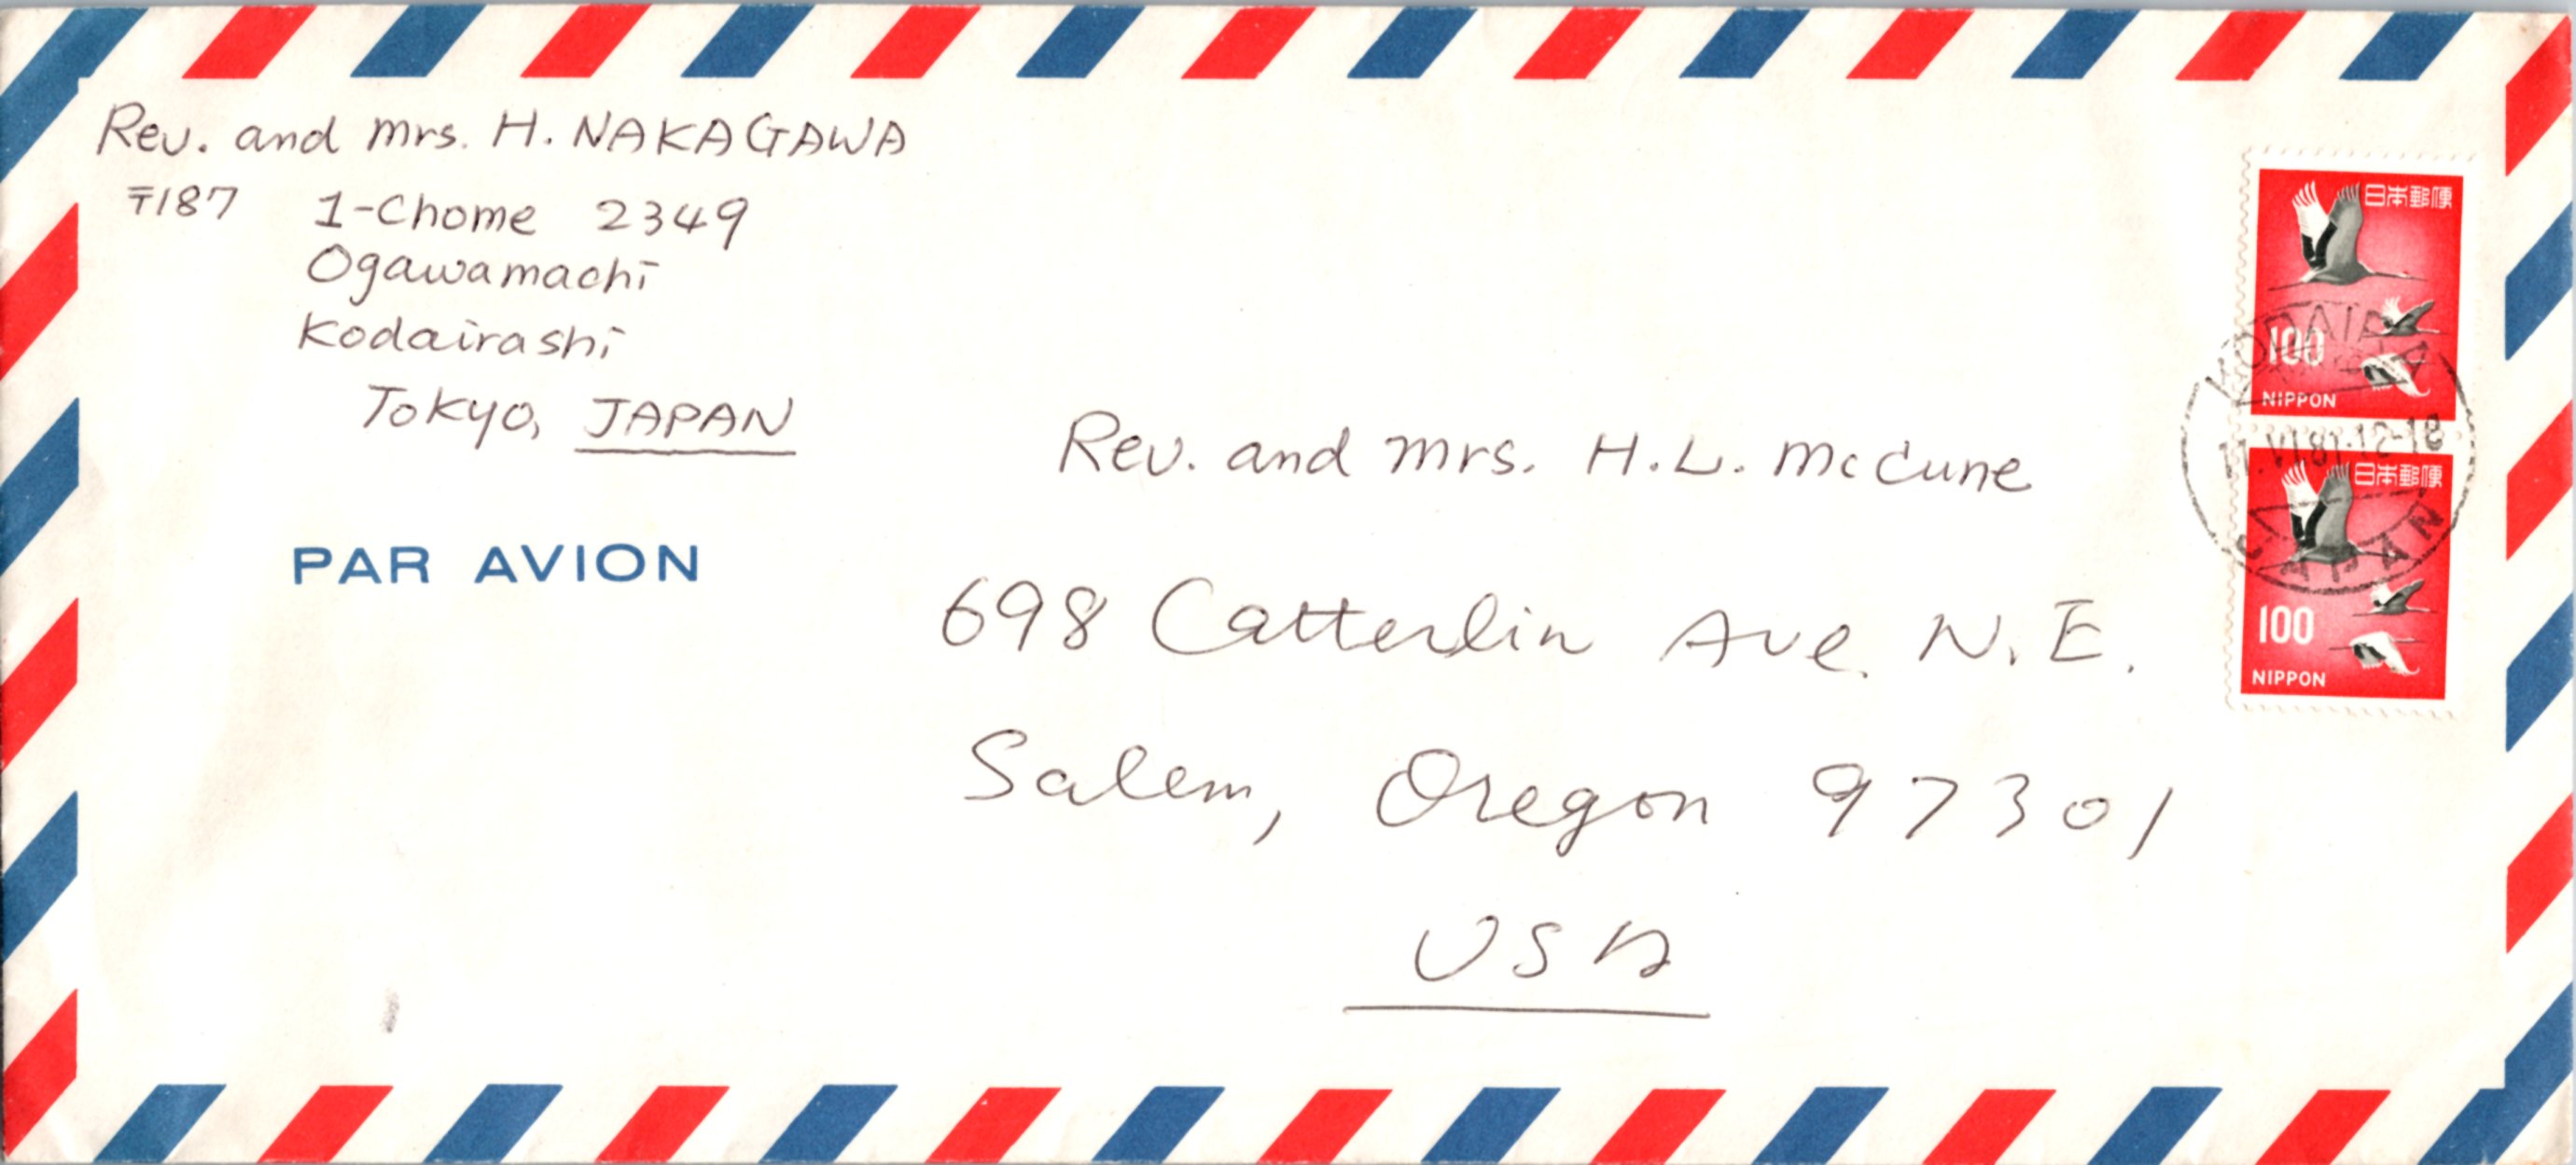 Rev. and Mrs. H. NAKAGAWA
〒187 1-Chome 2349
Ogawamachi
Kodairashi
Tokyo, JAPAN
PAR AVION
Rev. and Mrs. H.L. McCune
698 Catterlin Ave N.E.
Salem, Oregon 97301
USA
日本郵便
100
NIPPON
KODAIRA
11.VI.81.12-18
JAPAN
日本郵便
100
NIPPON